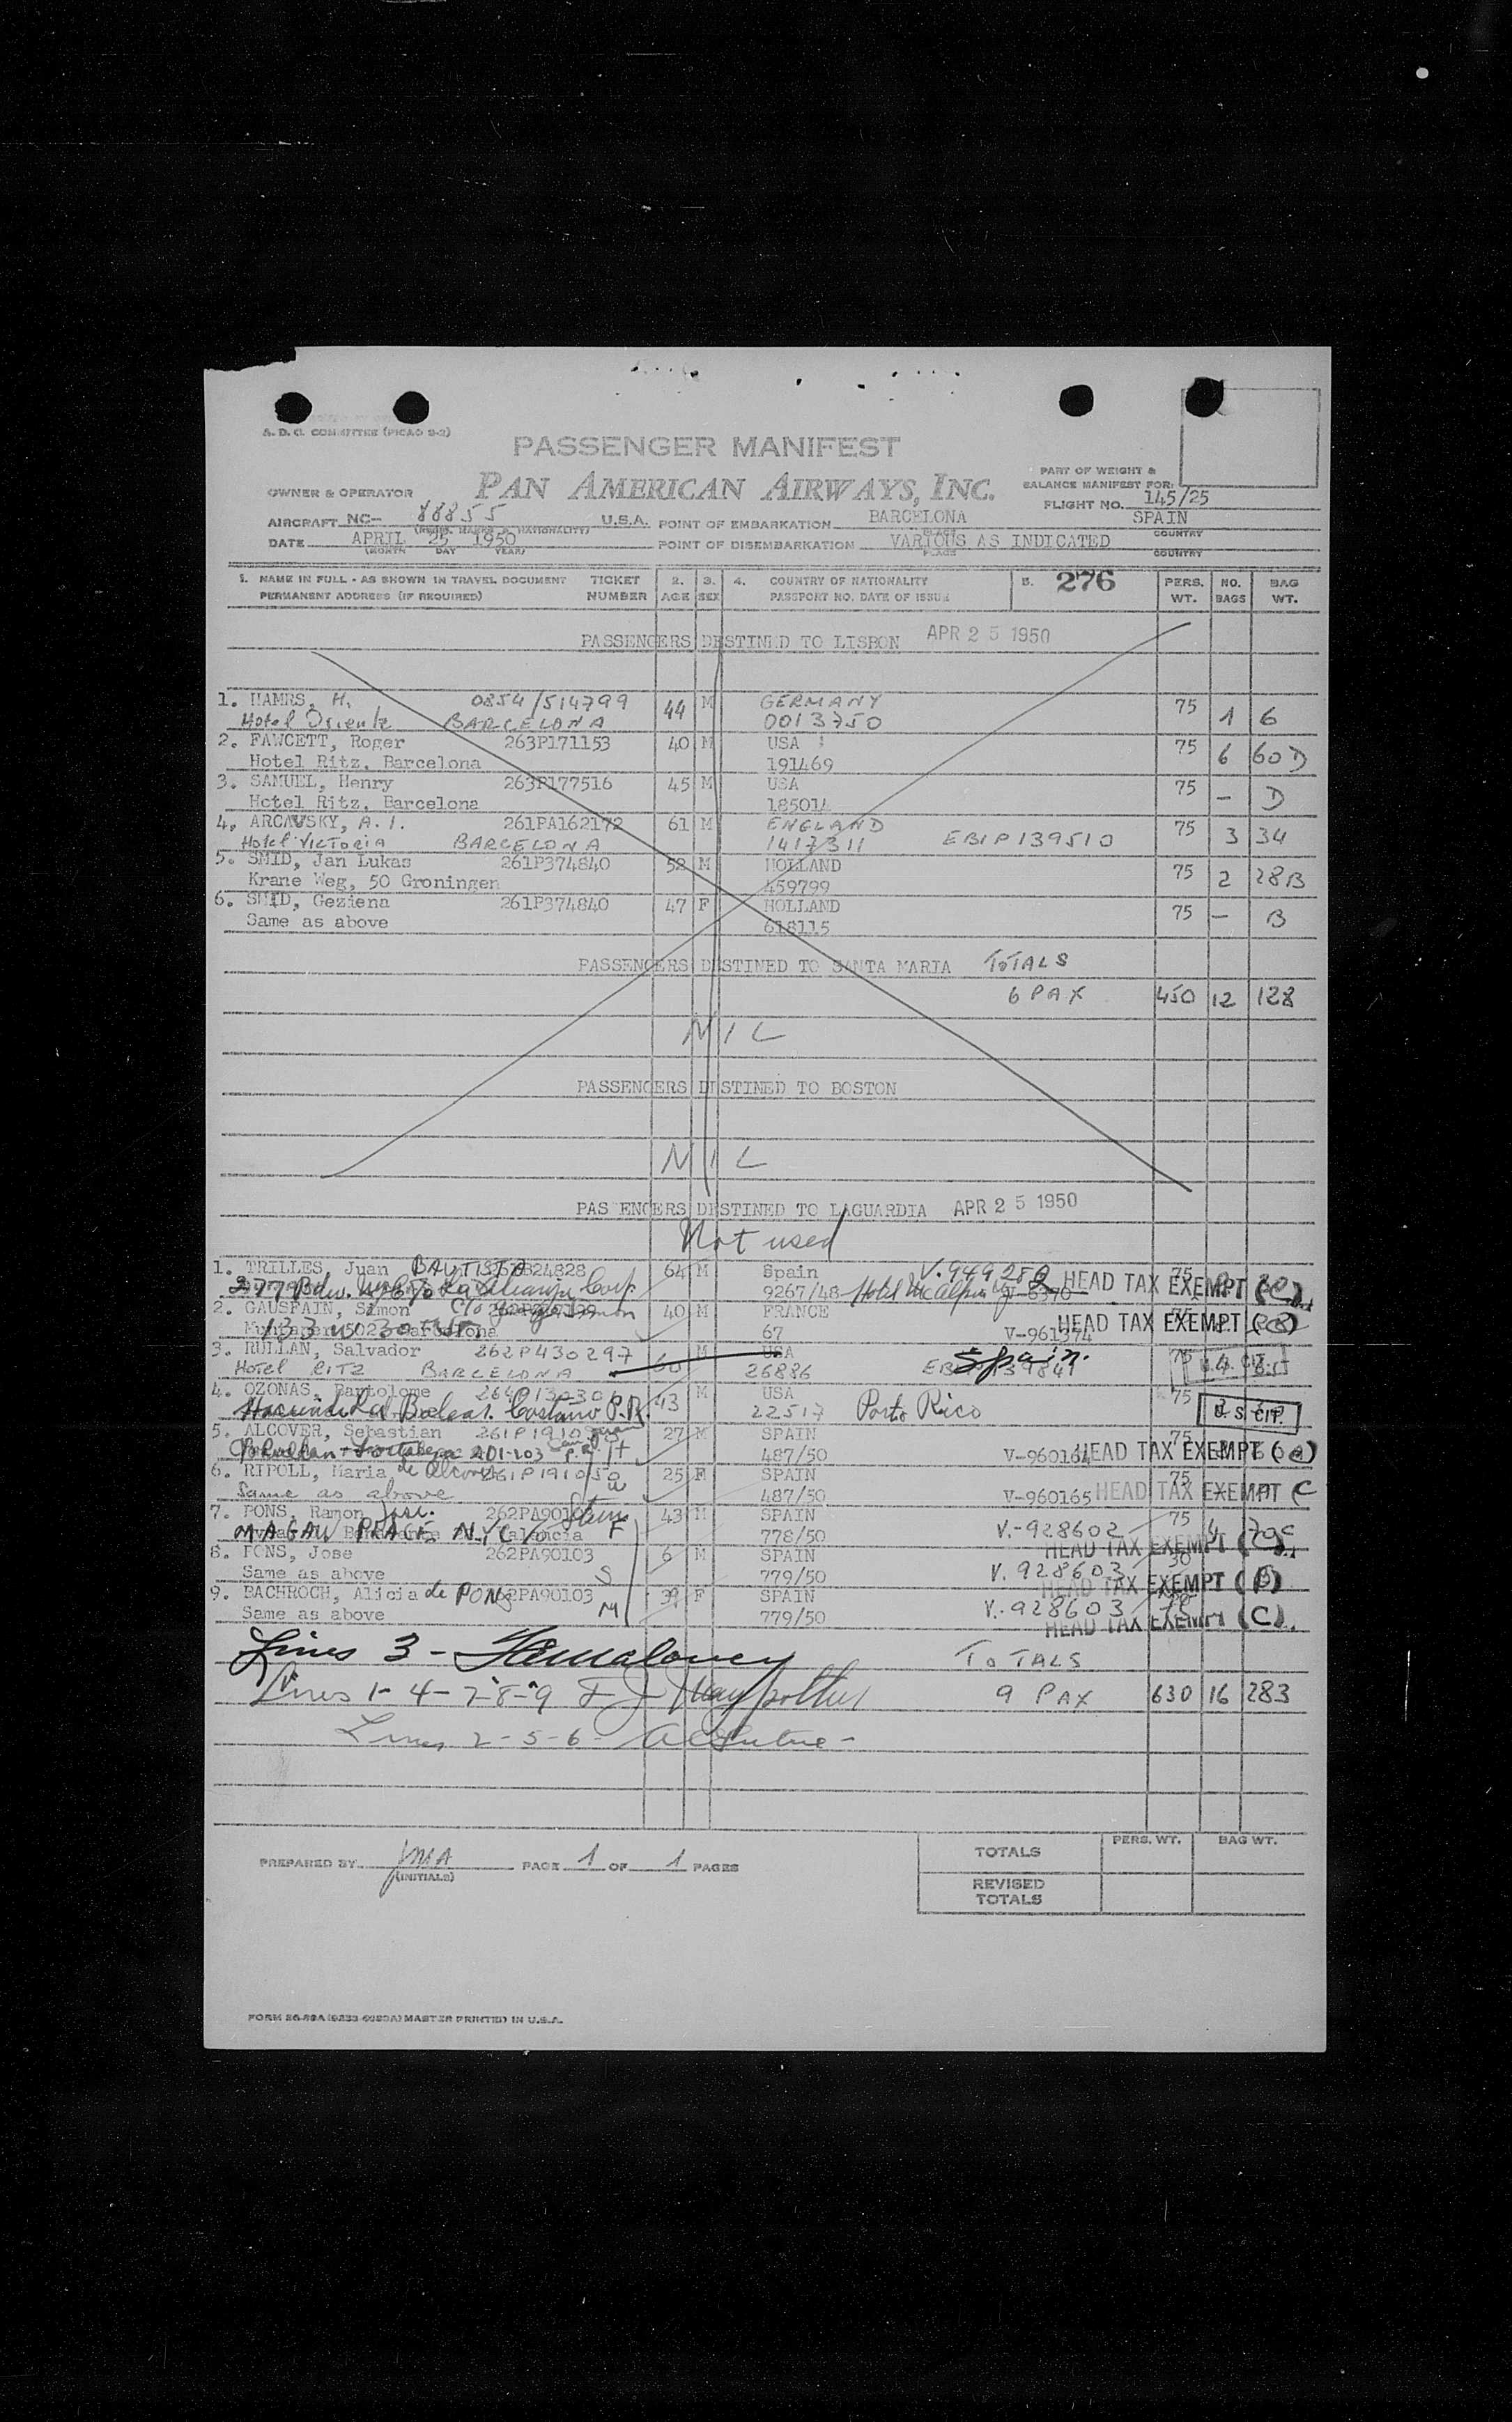 A. D. C. COMMITTEE (PICAO 9-2)
PASSENGER MANIFEST
PART OF WEIGHT &
BALANCE MANIFEST FOR:
OWNER & OPERATOR PAN AMERICAN AIRWAYS, INC.
FLIGHT NO. 145/25
AIRCRAFT NC- 88855 U.S.A. POINT OF EMBARKATION BARCELONA SPAIN
PLACE COUNTRY
DATE APRIL 25 1950 POINT OF DISEMBARKATION VARIOUS AS INDICATED
(MONTH DAY YEAR) PLACE COUNTRY
1. NAME IN FULL - AS SHOWN IN TRAVEL DOCUMENT TICKET 2. 3. 4. COUNTRY OF NATIONALITY 5. 276 PERS. NO. BAG
PERMANENT ADDRESS (IF REQUIRED) NUMBER AGE SEX PASSPORT NO. DATE OF ISSUE WT. BAGS WT.
PASSENGERS DESTINED TO LISBON APR 25 1950
1. HAMRS, H. 0854/514799 44 M GERMANY 75 1 6
Hotel Oriente BARCELONA 0013750
2. FAWCETT, Roger 263P171153 40 M USA 75 6 60 D
Hotel Ritz, Barcelona 191469
3. SAMUEL, Henry 263P177516 45 M USA 75 - D
Hotel Ritz, Barcelona 185014
4. ARCAVSKY, A. I. 261PA162172 61 M ENGLAND 75 3 34
Hotel VICTORIA BARCELONA 1417311 EBIP139510
5. SMID, Jan Lukas 261P374840 52 M HOLLAND 75 2 28B
Krane Weg, 50 Groningen 459799
6. SMID, Geziena 261P374840 47 F HOLLAND 75 - B
Same as above 618115
PASSENGERS DESTINED TO SANTA MARIA TOTALS
6 PAX 450 12 128
NIL
PASSENGERS DESTINED TO BOSTON
NIL
PASSENGERS DESTINED TO LAGUARDIA APR 25 1950
Not used
1. TRILLES, Juan BAUTISTA 64 M Spain V. 949280 75 HEAD TAX EXEMPT (C)
9267/48 Hotel McAlpin
2. GAUSFAIN, Simon 40 M FRANCE HEAD TAX EXEMPT
133 W 30 67 V-961374
3. RULLAN, Salvador 262P430297 60 M USA Spain. 75 4
HOTEL RITZ BARCELONA 26886
4. OZONAS, Bartolome 43 M USA 75 U.S. CIT.
22517 Porto Rico
5. ALCOVER, Sebastian 261P1910 27 M SPAIN 75
201-203 487/50 V-960164 HEAD TAX EXEMPT
6. RIPOLL, Maria de Alcover 261P191050 25 F SPAIN 75
Same as above 487/50 V-960165 HEAD TAX EXEMPT (C
7. PONS, Ramon Jose. 262PA901 43 M SPAIN 75 4
MAGAW PLACE NYC F 778/50 V.-928602 HEAD TAX EXEMPT (C)
8. PONS, Jose 262PA90103 6 M SPAIN 30
Same as above S 779/50 V. 928603 HEAD TAX EXEMPT
9. BACHROCH, Alicia de PONS 262PA90103 39 F SPAIN
Same as above M 779/50 V.-928603 75 HEAD TAX EXEMPT (C).
Lines 3 - TOTALS
Lines 1-4-7-8-9 9 PAX 630 16 283
Lines 2-5-6-
PREPARED BY PAGE 1 OF 1 PAGES
(INITIALS)
PERS. WT. BAG WT.
TOTALS
REVISED
TOTALS
MASTER PRINTED IN U.S.A.